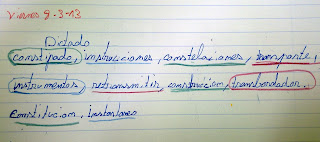 Viernes 9-3-13
Dictado
constipado, instrucciones, constelaciones, transporte,
instrumentos, retransmitir, construcción, transbordador,
constitucion, instantaneo